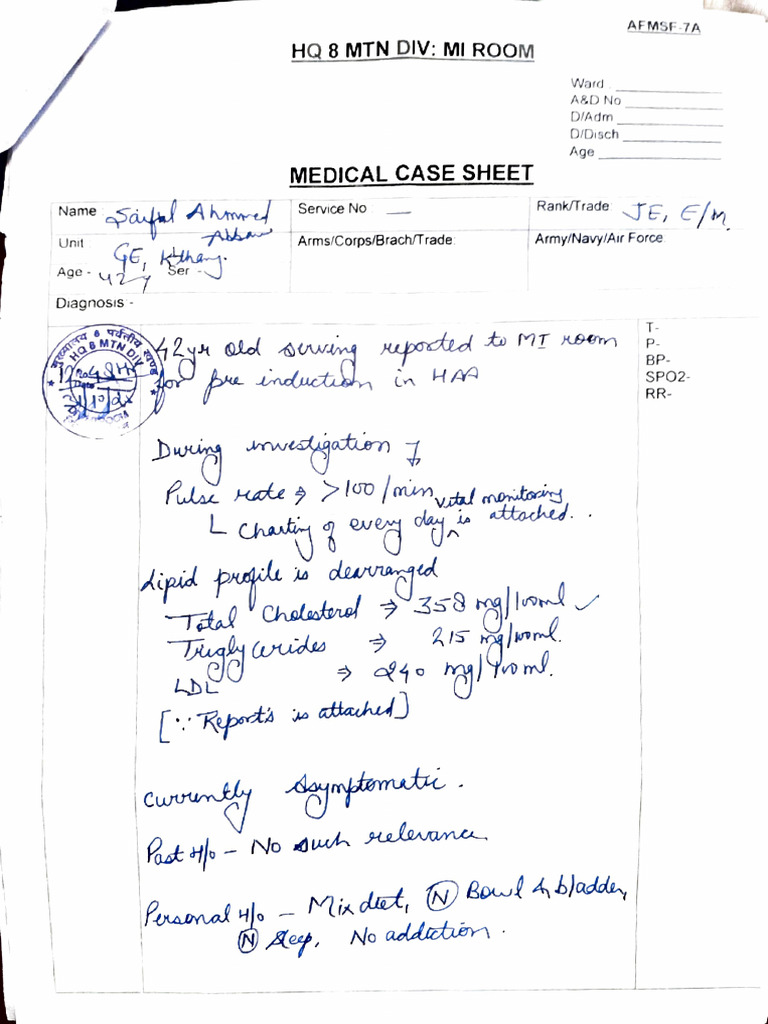 AFMSF-7A
HQ 8 MTN DIV: MI ROOM
Ward
A&D No
D/Adm
D/Disch
Age
MEDICAL CASE SHEET
Name Saiful Ahmmed Abbas
Service No —
Rank/Trade: JE, E/M.
Unit GE,
Arms/Corps/Brach/Trade:
Army/Navy/Air Force
Age - 42 y Ser -
Diagnosis -
HQ 8 MTN DIV
42yr old serving reported to MI room
for pre induction in HAA
T-
P-
BP-
SPO2-
RR-
During investigation
Pulse rate ⇒ >100/min
Charting of every day vital monitoring is attached.
Lipid profile is dearranged
Total Cholesterol ⇒ 358 mg/100ml ✓
Triglycerides ⇒ 215 mg/100ml.
LDL ⇒ 240 mg/100ml.
[∵ Report's is attached]
Currently Asymptomatic.
Past H/o - No such relevance
Personal H/o - Mix diet, Ⓝ Bowl & bladder,
Ⓝ sleep, No addiction.